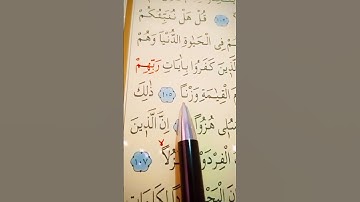 قُلْ هَلْ نُنَبِّئُكُمْ
فِي الْحَيٰوةِ الدُّنْيَا وَهُمْ
الَّذ۪ينَ كَفَرُوا بِاٰيَاتِ رَبِّهِمْ
الْقِيٰمَةِ وَزْنًا ١٠٥ ذٰلِكَ
هُزُوًا اِنَّ الَّذ۪ينَ
الْفِرْدَوْ لًا ١٠٧
لِكَلِمَاتِ